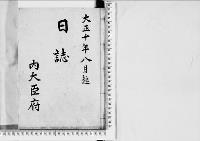 大正十年八月起
日誌
内大臣府